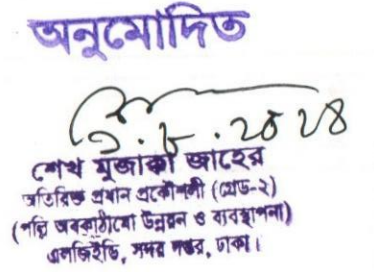 অনুমোদিত
শেখ মুজাক্কা জাহের
অতিরিক্ত প্রধান প্রকৌশলী (গ্রেড-২)
(পল্লি অবকাঠামো উন্নয়ন ও ব্যবস্থাপনা)
এলজিইডি, সদর দপ্তর, ঢাকা।